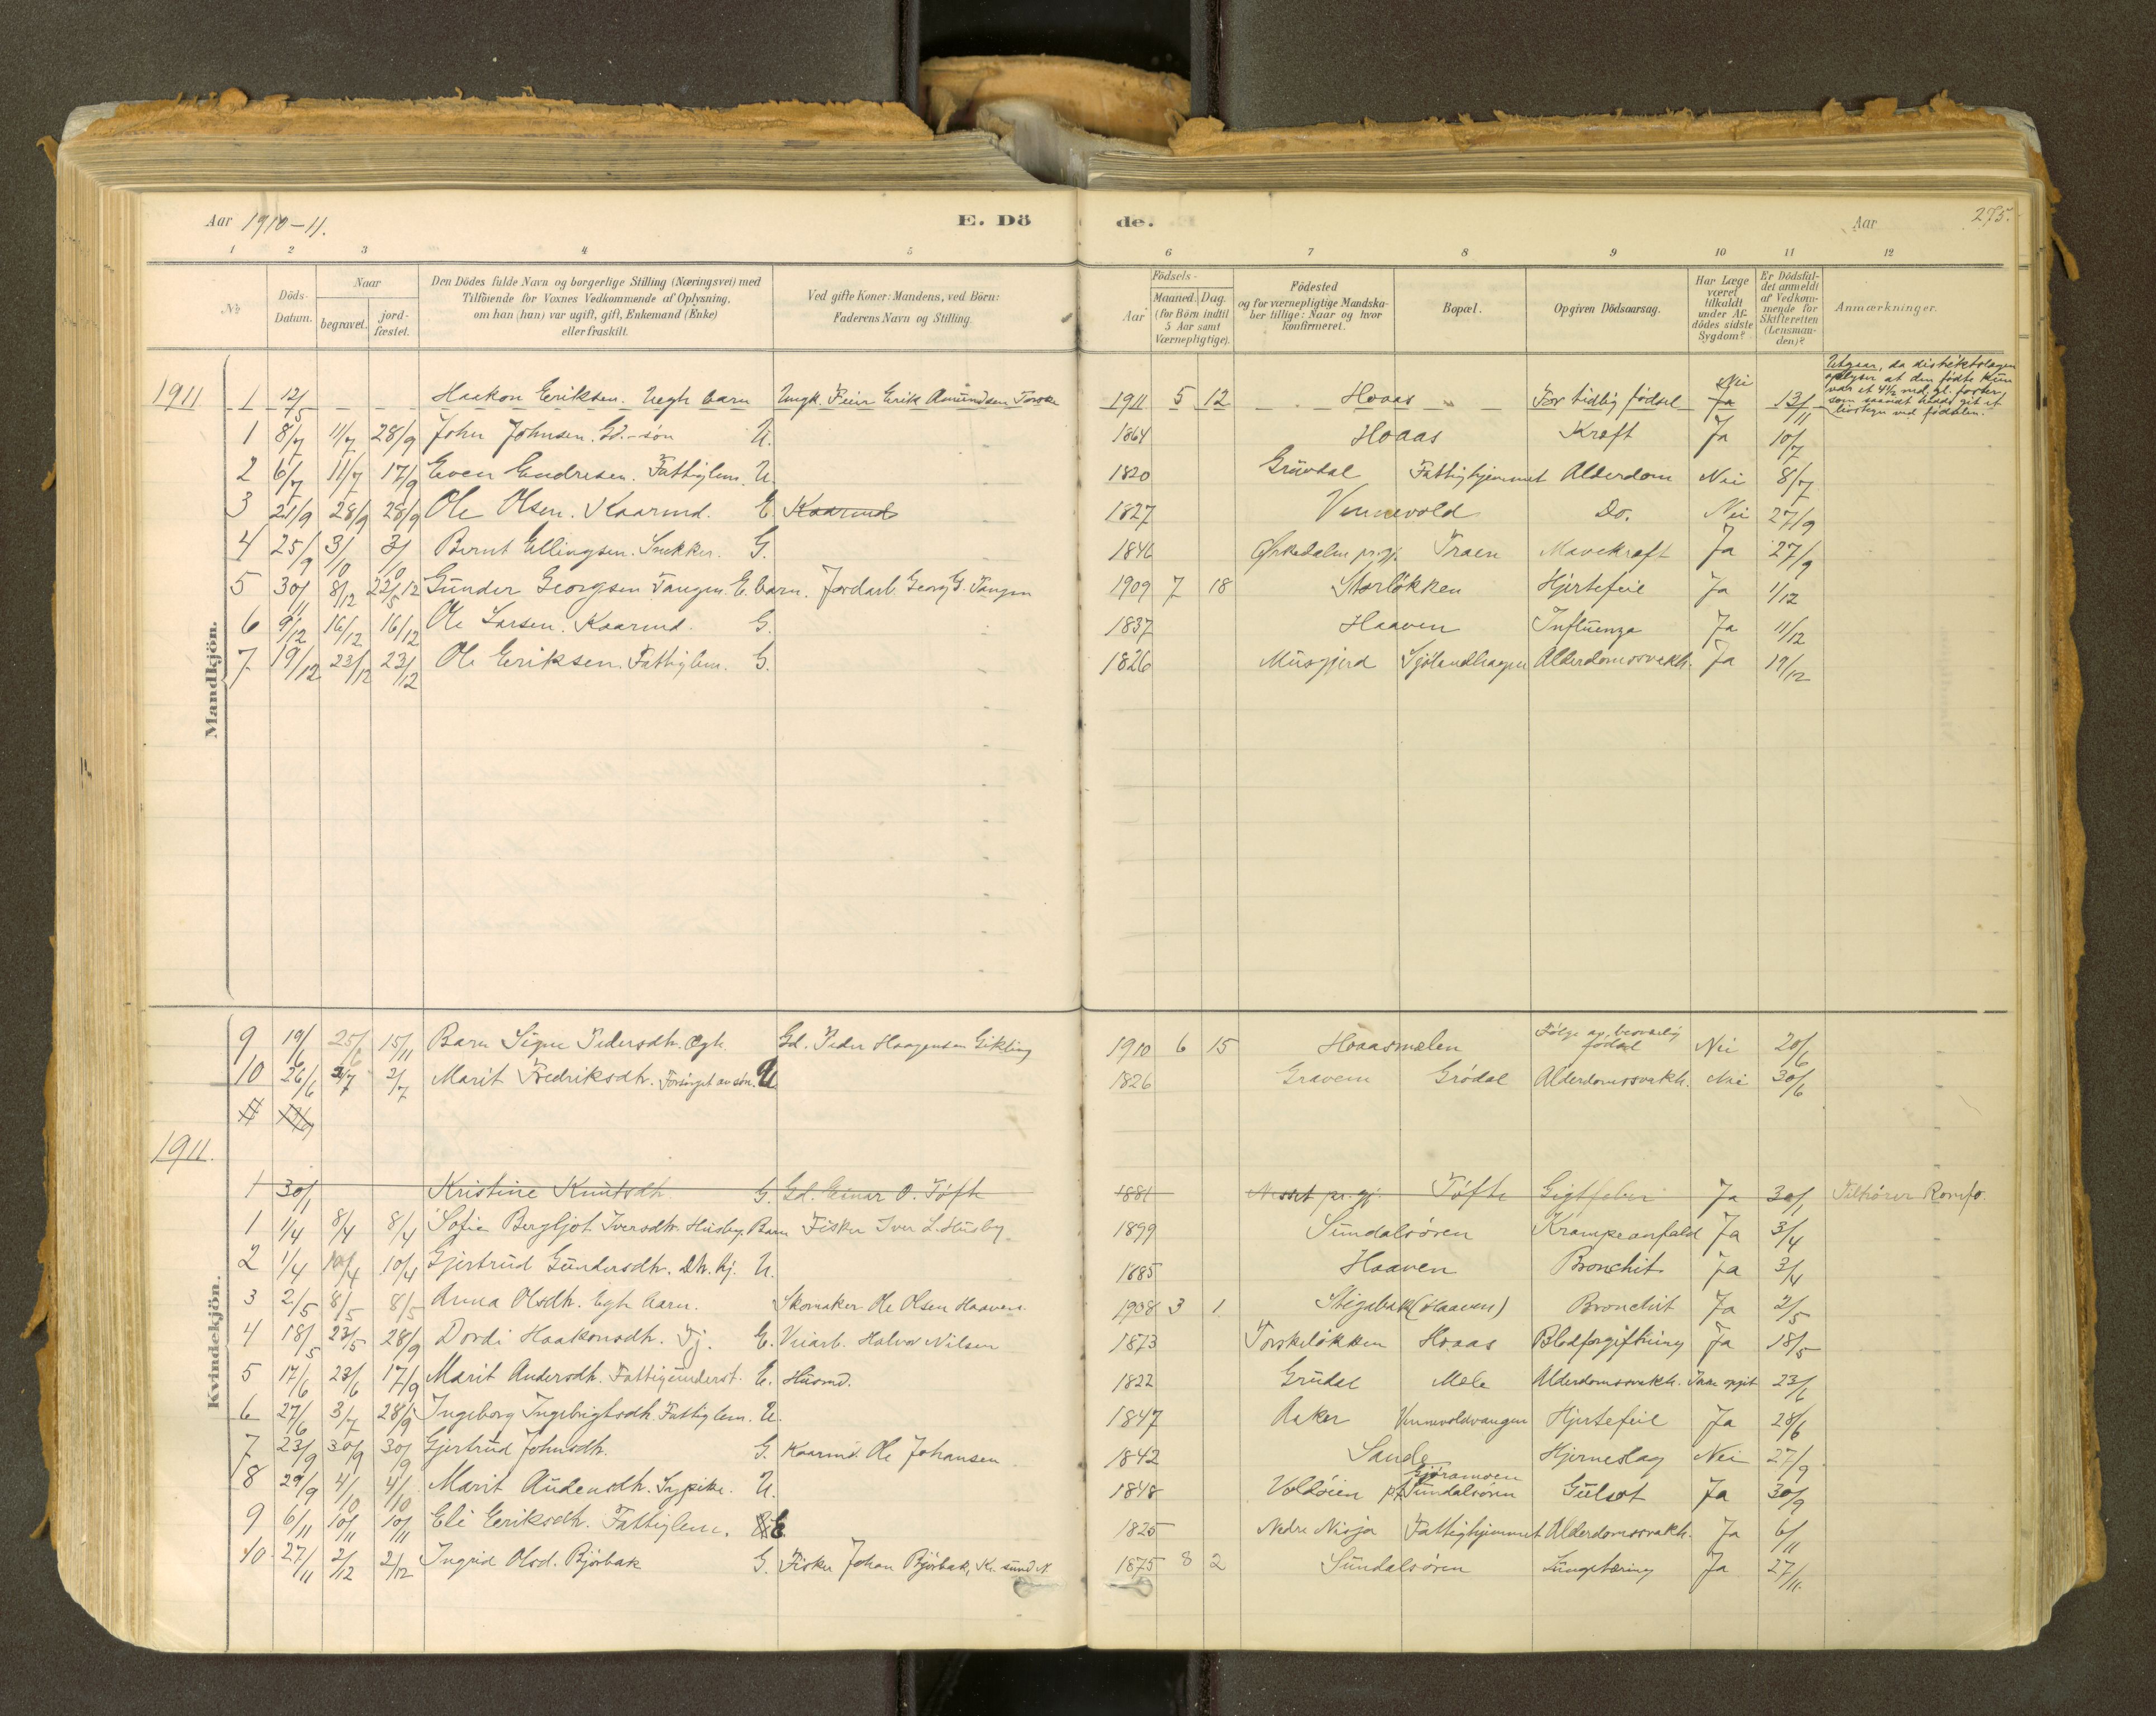 Aar 1910-11. E. Dö de. Aar 275.
1 2 3 4 5 6 7 8 9 10 11 12
№
Döds-
Datum.
Naar
begravet.
jord-
fæstet.
Den Dödes fulde Navn og borgerlige Stilling (Næringsvei) med
Tilföiende for Voxnes Vedkommende af Oplysning,
om han (hun) var ugift, gift, Enkemand (Enke)
eller fraskilt.
Ved gifte Koner: Mandens, ved Börn:
Faderens Navn og Stilling.
Födsels-
Aar
Maaned. Dag.
(for Börn indtil
5 Aar samt
Værnepligtige).
Födested
og for værnepligtige Mandska-
ber tillige: Naar og hvor
konfirmeret.
Bopæl.
Opgiven Dödsaarsag.
Har Læge
været
tilkaldt
under Af-
dödes sidste
Sygdom?
Er Dödsfal-
det anmeldt
af Vedkom-
mende for
Skifteretten
(Lensman-
den)?
Anmærkninger.
Mandkjön.
1911 1 12/5 Haakon Eriksen. Uegte barn Ungk. Erik Amundsen Torske 1911 5 12 Hoaas For tidlig födsel Nei Ja 13/11
Utgaar, da distriktslægen
oplyser at den födte kun
var et 4½ md. gl. foster,
som saavidt hadde git et
livstegn ved födselen.
1 8/7 11/7 28/9 John Johnsen. Gd.-søn U. 1864 Hoaas Kræft Ja 10/7
2 6/7 11/7 17/9 Even Endresen. Fattiglem. U. 1820 Grüvdal Fattighjemmet Alderdom Nei 8/7
3 21/9 28/9 28/9 Ole Olsen. Kaarmd. E. Kaarmd 1827 Vennevold Do. Nei 27/9
4 25/9 3/10 3/10 Bernt Ellingsen. Snekker. G. 1846 Ørkedalen pr.gj. Træen Mavekræft Ja 27/9
5 30/11 8/12 22/5 12 Gunder Georgsen Tangen. E. barn. Jordarb. Georg G. Tangen 1909 7 18 Storløkken Hjertefeil Ja 1/12
6 9/12 16/12 16/12 Ole Larsen. Kaarmd. G. 1837 Haaven Influenza Ja 11/12
7 19/12 23/12 23/12 Ole Eriksen Fattiglem. G. 1826 Musgjerd Sjølandhagen Alderdomssvækk. Ja 19/12
Kvindekjön.
9 19/6 25/6 15/11 Barn Signe Pedersdtr. Ægte. Gd. Peder Haagensen Gikling 1910 6 15 Hoaasmælen Følge av besværlig
födsel Nei 20/6
10 26/6 2/7 2/7 Marit Fredriksdtr. Forsörget av søn. U 1826 Gravem Grödal Alderdomssvækk. Nei 30/6
1911.
1 30/1 Kristine Knutsdtr. G. Gd. Einar O. Töfte 1881 Nesset pr. gj. Töfte Gigtfeber Ja 30/1 Tilhører Romfo.
1 1/4 8/4 8/4 Sofie Bergljot Iversdtr. Husby Barn Fisker Iver L. Husby. 1899 Sundalsören Krampeanfald Ja 3/4
2 1/4 10/4 10/4 Gjertrud Gundersdtr. Dtr. hj. U. 1885 Haaven Bronchit Ja 3/4
3 2/5 8/5 8/5 Anna Olsdtr. Egte barn. Skomaker Ole Olsen Haaven. 1908 3 1 Stigabak (Haaven) Bronchit Ja 2/5
4 18/5 23/5 28/9 Dordi Haakonsdtr. Tj. E. Veiarb. Halvor Nilsen 1873 Torskeløkken Hoaas Blodforgiftning Ja 18/5
5 17/6 23/6 17/9 Marit Andersdtr. Fattigunderst. E. Husmd. 1822 Grüdal Mæle Alderdomssvækk. Ikke opgit 23/6
6 27/6 3/7 28/9 Ingeborg Ingebrigtsdtr. Fattiglem. U. 1847 Aaker Vennevoldvangen Hjertefeil Ja 28/6
7 23/9 30/9 30/9 Gjertrud Johnsdtr. G. Kaarmd. Ole Johansen 1842 Sande Hjerneslag Nei 27/9
8 29/9 4/10 4/10 Marit Audensdtr. Sypike. U. 1848 Voldöien Gjöramoen
Sundalsören Gulsot Ja 30/9
9 6/11 10/11 10/11 Eli Eriksdtr. Fattiglem. E. 1825 Nedre Nisja Fattighjemmet Alderdomssvækk. Ja 6/11
10. 27/11 2/12 2/12 Ingrid Olsd. Bjørbak G. Fisker Johan Bjørbak, Kr.sund N. 1875 8 2 Sundalsören Lungetæring Ja 27/11.